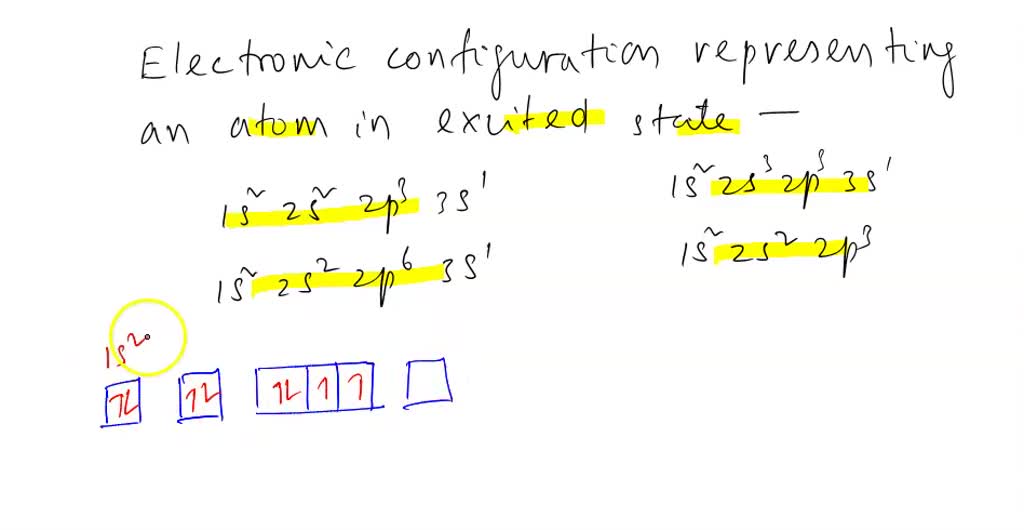 Electronic configuration representing
an atom in excited state —
1s² 2s² 2p³ 3s¹
1s² 2s³ 2p³ 3s¹
1s² 2s² 2p⁶ 3s¹
1s² 2s² 2p³
1s²
1L 1L 1L 1 1